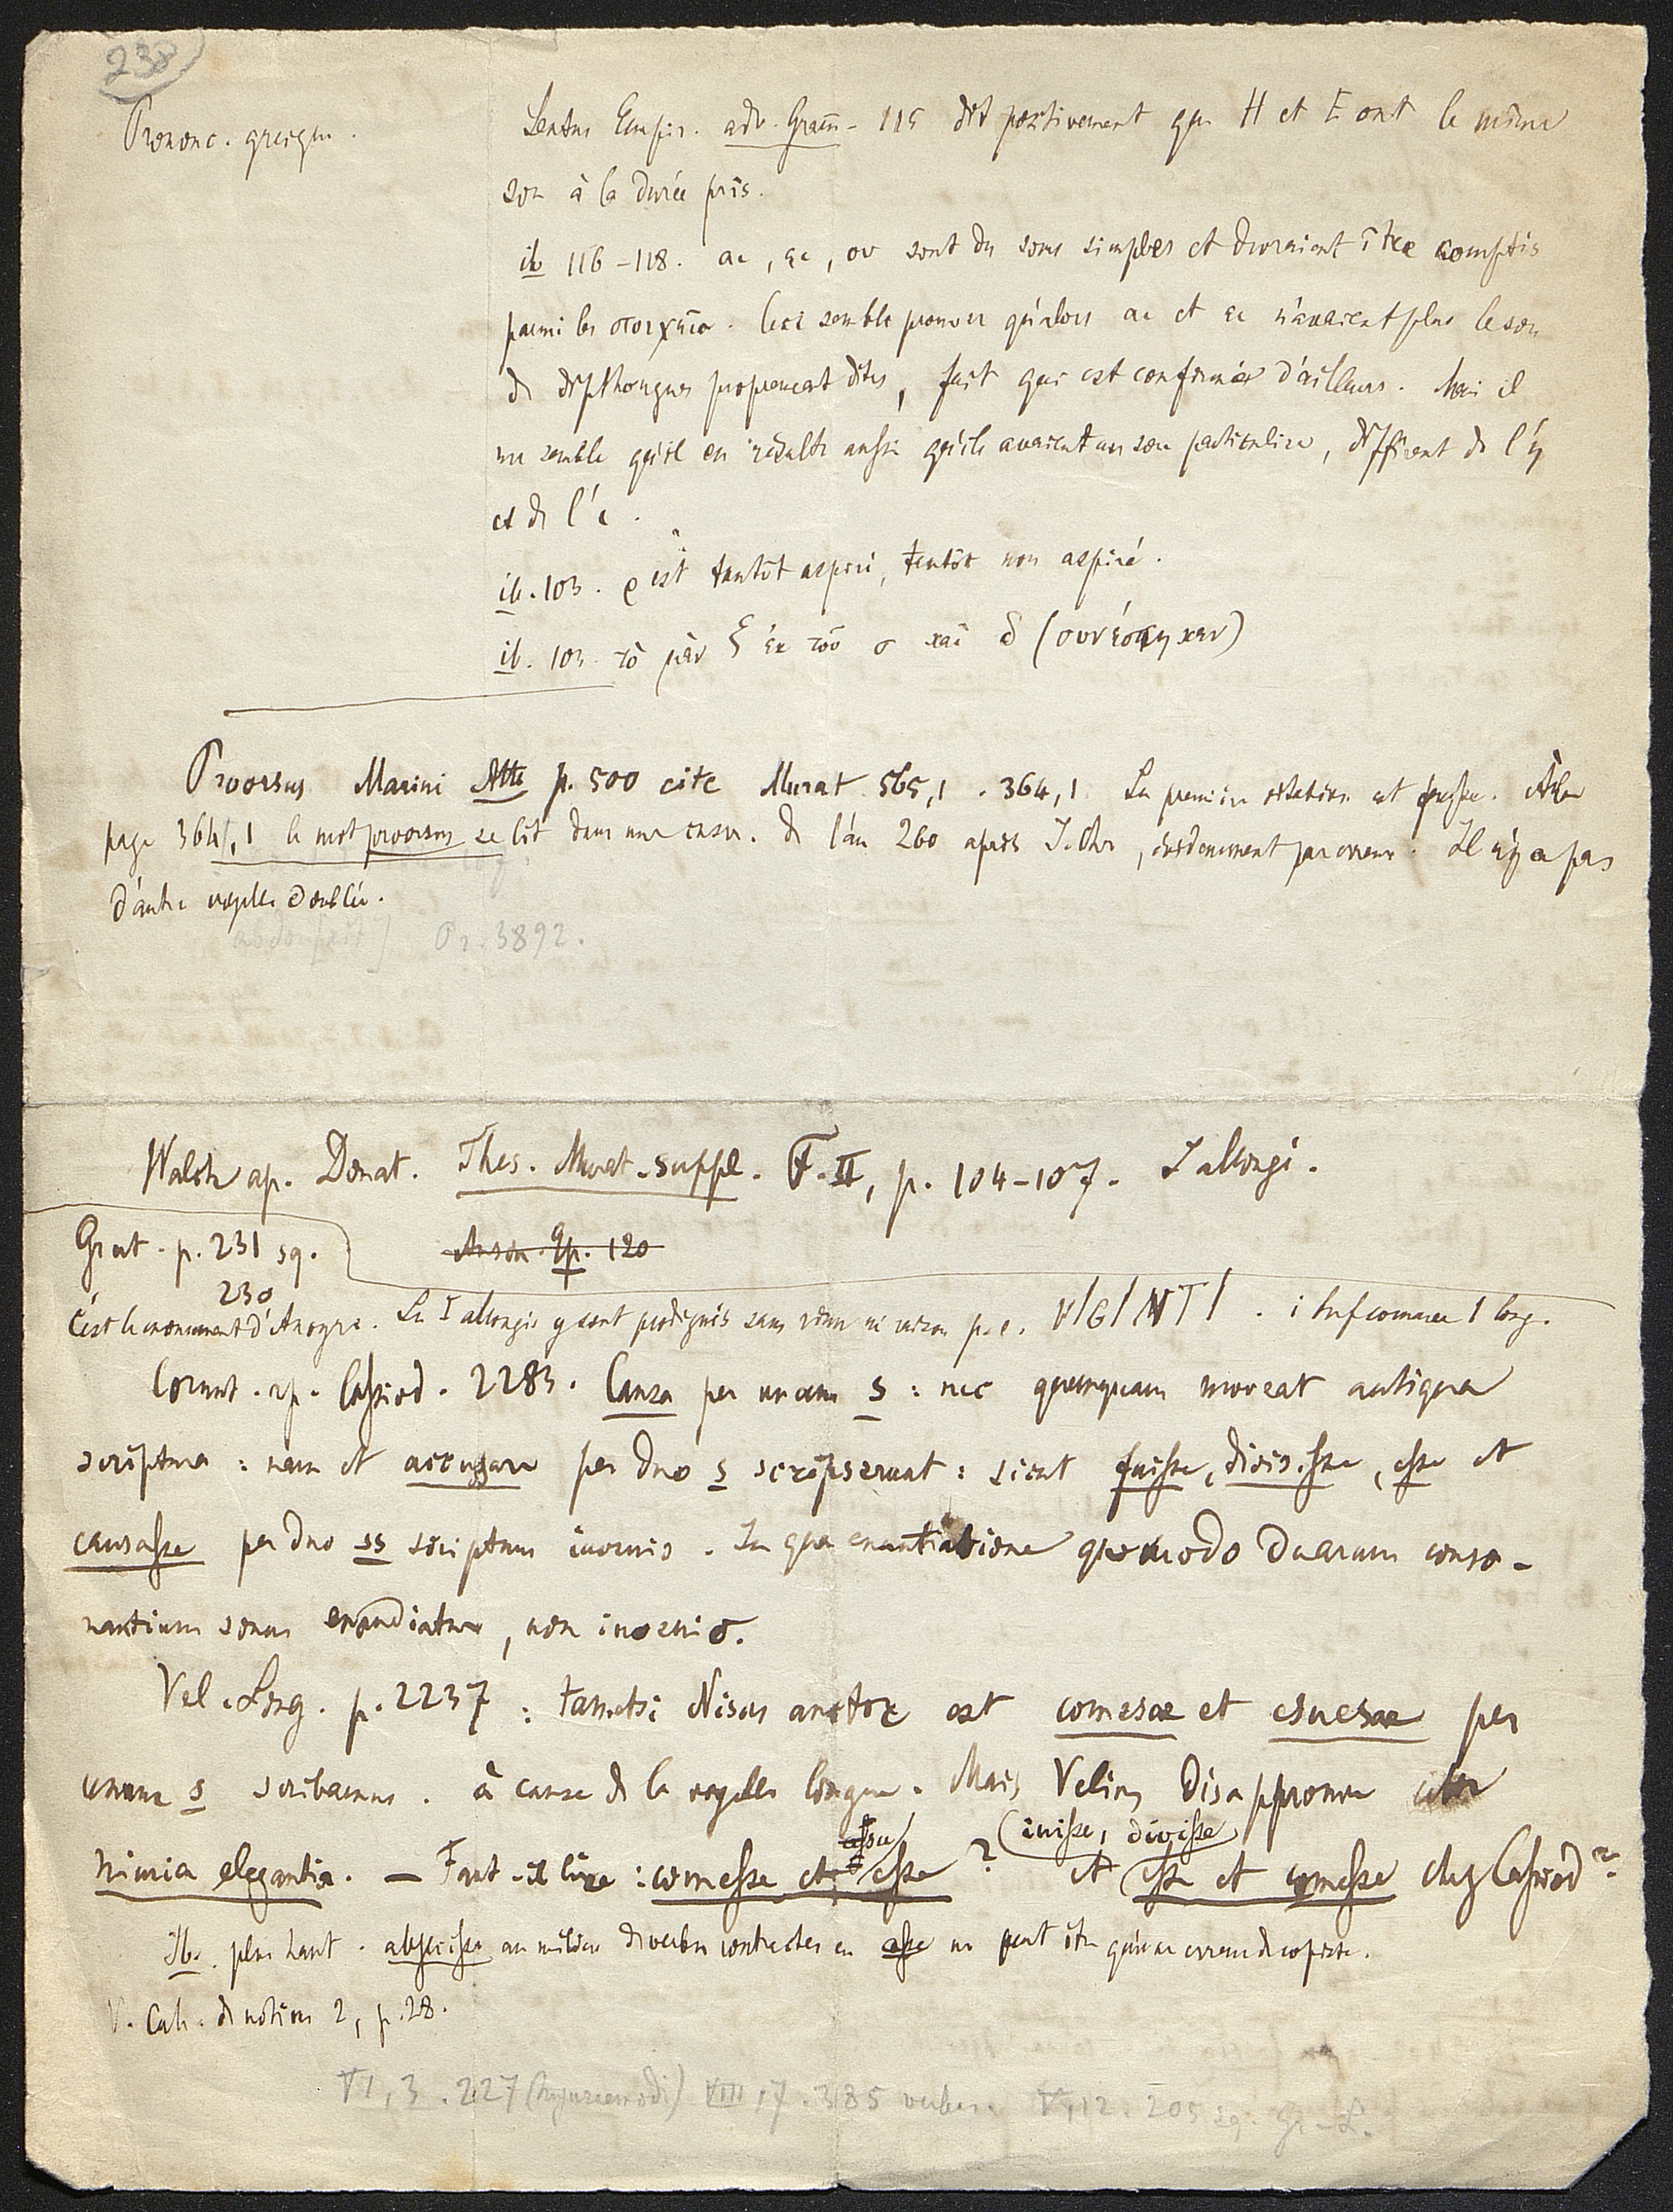 238
Prononc. grecque.
Sextus Empir. adv. Gram. 115 dit positivement que H et E ont le même
son à la durée près.
ib 116-118. αι, ει, ου sont des sons simples et devraient être comptés
parmi les στοιχεῖα. Ceci semble prouver qu'alors αι et ει n'avaient plus le son
de diphthongues proprement dites, fait qui est confirmé d'ailleurs. Mais il
me semble qu'il en résulte aussi qu'ils avaient un son particulier, différent de l'η
et de l'ι.
ib. 103. ρ est tantôt aspiré, tantôt non aspiré.
ib. 103. τὸ μὲν ξ ἐκ τοῦ σ καὶ δ (συνέστηκεν)
Proorsus Marini Atti p. 500 cite Murat 565,1. 364,1 La première citation est fausse. A la
page 364,1 le mot proorsus se lit dans une inscr. de l'an 260 après J. Chr, évidemment par erreur. Il n'y a pas
d'autre voyelle doublée.
Or. 3892.
Walch ap. Donat. Thes. Murat. suppl. T. II, p. 104-107. I allongé.
Grut. p. 231 sq.
230
C'est le monument d'Ancyre. Les I allongés y sont prodigués sans rime ni raison p. e. VIGINTI. i bref comme I long.
Cornut. ap. Cassiod. 2283. Causa per unum s: nec quemquam moveat antiqua
scriptura: nam et accussare per duo s scripserunt: sicut fuisse, divisisse, esse et
causasse per duo ss scriptum invenio. In qua enuntiatione quomodo duarum conso-
nantium sonus exaudiatur, non invenio.
Vel. Long. p. 2237: tametsi Nisus auctor est comese et esuese per
unum s scribamus. à cause de la voyelle longue. Mais Velius disapprouve cette
nimia elegantia. — Faut-il lire: comesse et esse? et (inisse, divisse) esse et comesse chez Cassiod?
Ib. plus haut. abscisse au milieu de verbes contractes en asse ne peut être qu'une erreur de copiste.
V. Cah. de notices 2, p. 28.
VI, 3. 227 (hujuscemodi) VIII, 7. 385 verbes. V, 12. 205 sq. Gr-L.